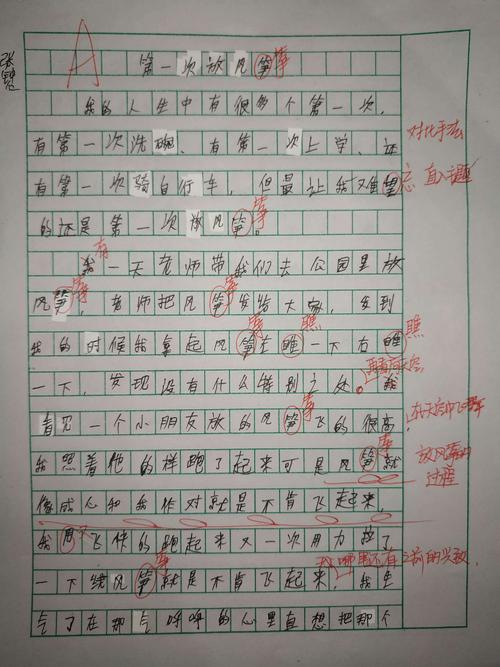 A
第一次放风筝
我的人生中有很多个第一次,
有第一次洗碗,有第一次上学,还 对比手法
有第一次骑自行车,但最让我难望 忘 直入主题
的还是第一次放风筝。
有
我一天老师带我们去公园里放
风筝,老师把风筝发给大家,发到
我的时候我拿起风筝左瞧一下右瞧 瞧
一下,发现没有什么特别之处。我
看见一个小朋友放的风筝飞的很高,
我照着他的样跑了起来可是风筝就 放风筝的
像成心和我作对就是不肯飞起来, 过程
我飞快的跑起来又一次用力拉了
一下绕风筝就是不肯飞起来,我生
气了在那气呼呼的心里直想把那个